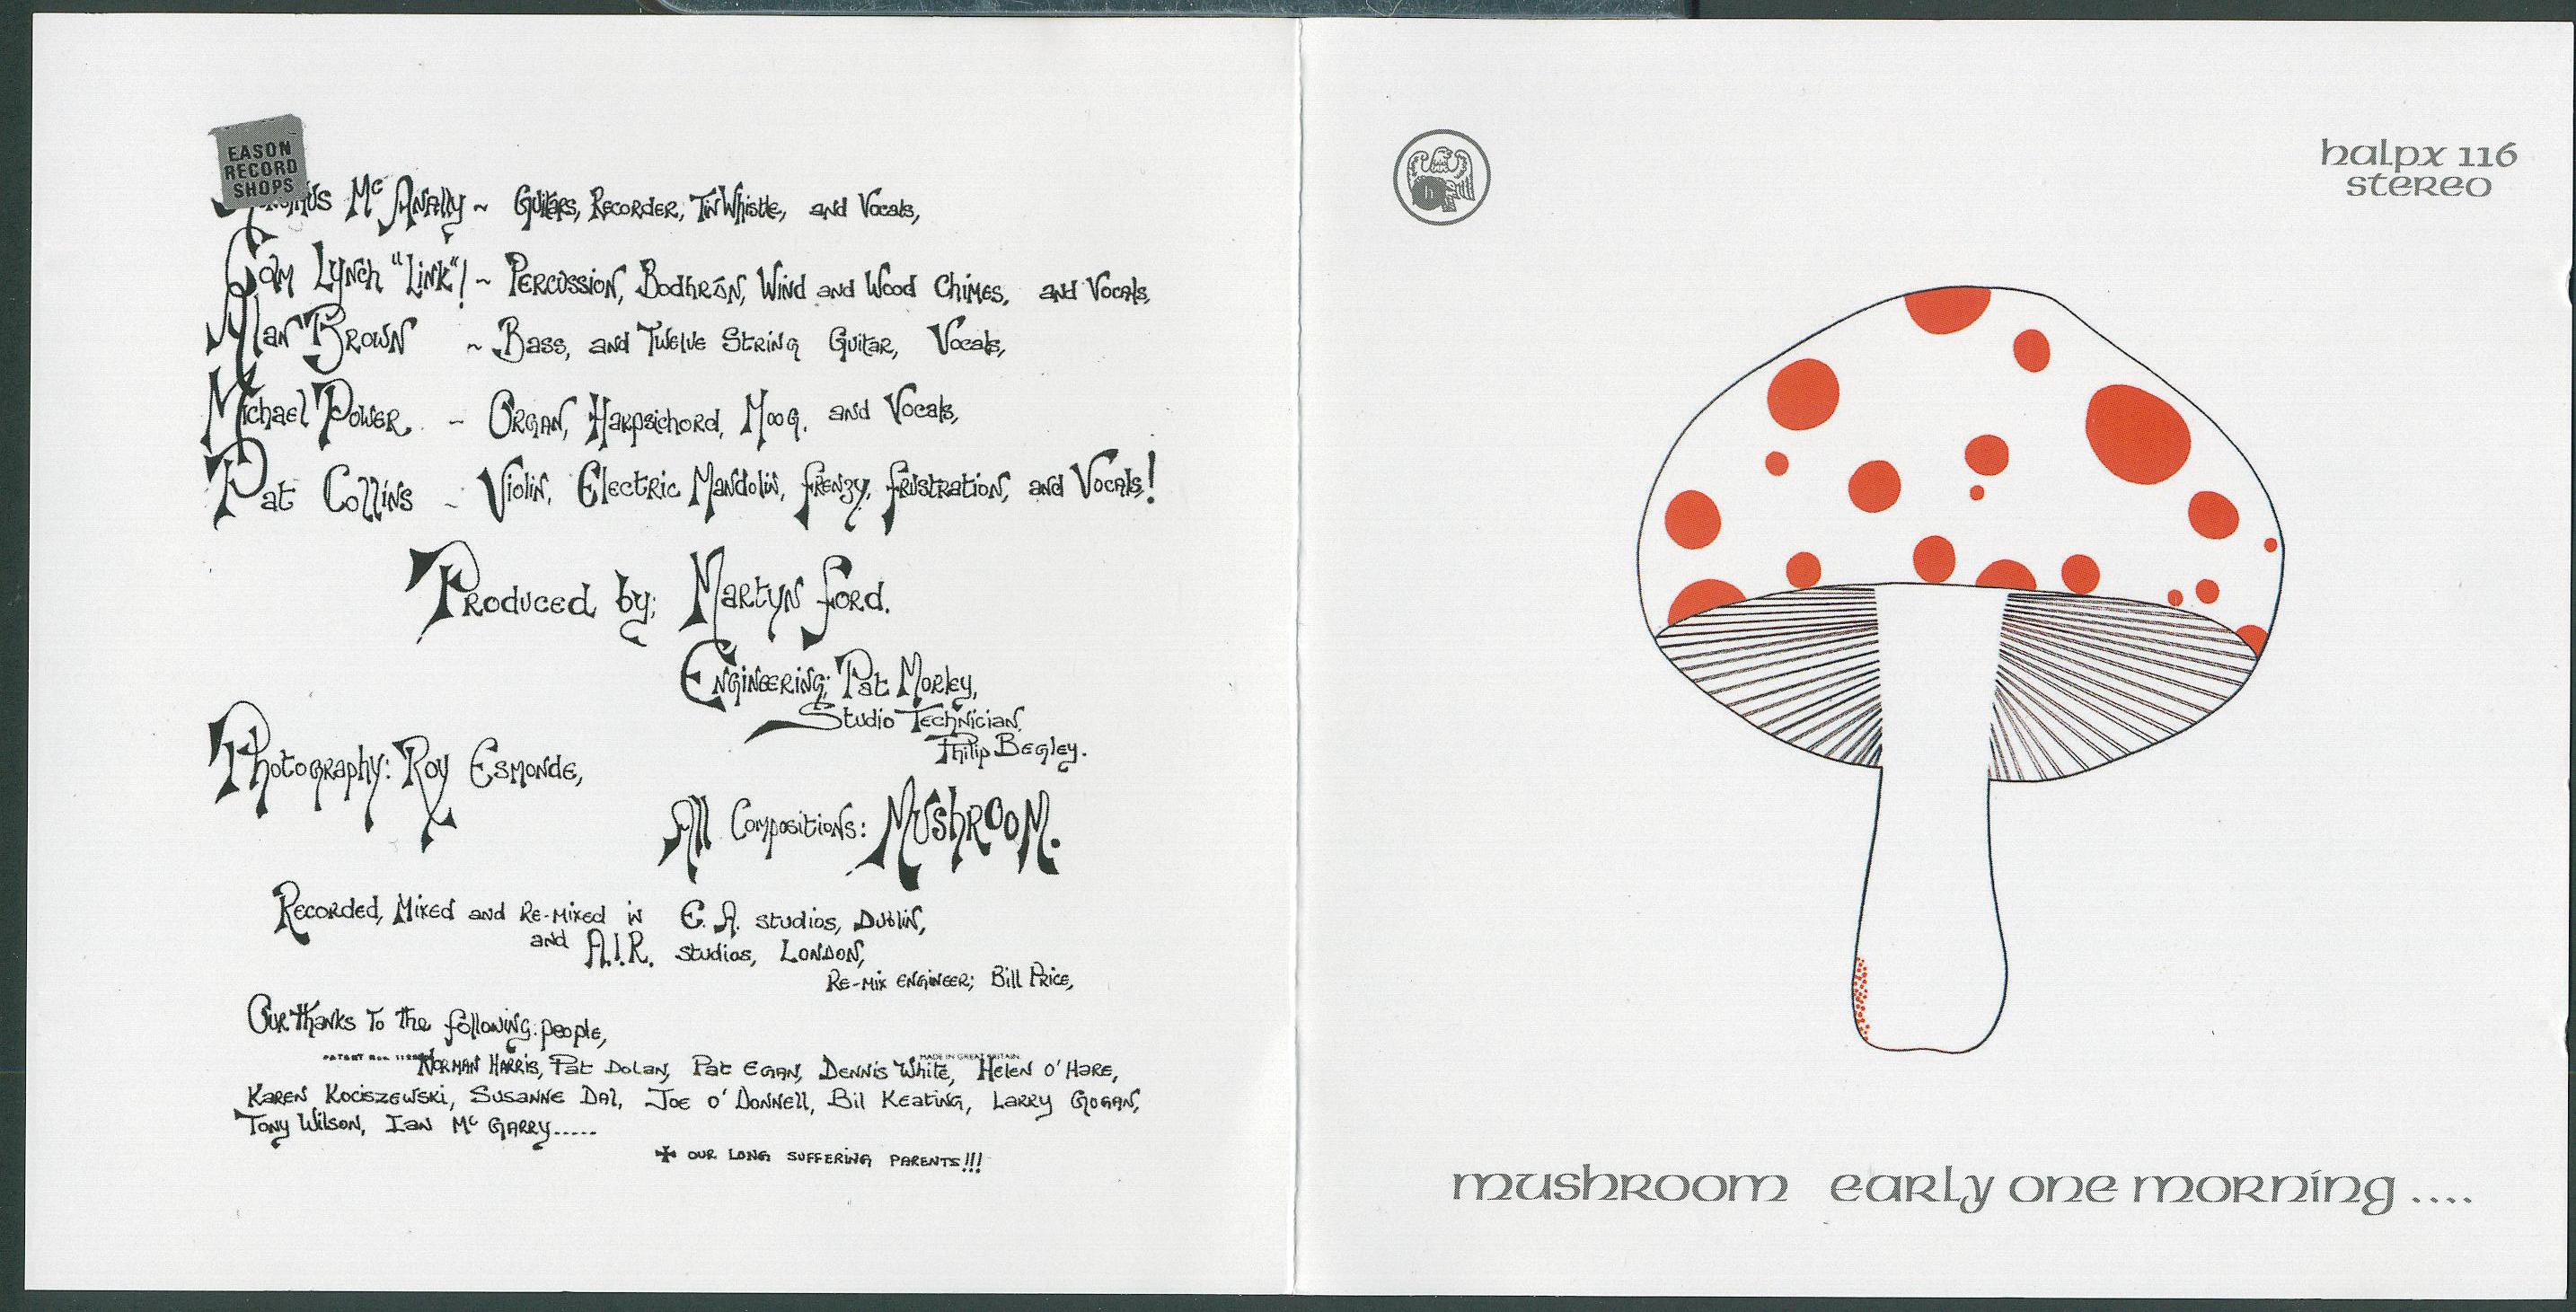 EASON
RECORD
SHOPS
Mc Anally ~ Guitars, Recorder, Tin Whistle, and Vocals,
Colm Lynch "Link"! ~ Percussion, Bodhrán, Wind and Wood Chimes, and Vocals,
Alan Brown ~ Bass, and Twelve String Guitar, Vocals,
Michael Power ~ Organ, Harpsichord, Moog, and Vocals,
Pat Collins ~ Violin, Electric Mandolin, frenzy, frustration, and Vocals!
Produced by; Martyn Ford.
Engineering; Pat Morley,
Studio Technician,
Philip Begley.
Photography: Roy Esmonde,
All Compositions: Mushroom.
Recorded, Mixed and Re-mixed in E.A. studios, Dublin,
and A.I.R. studios, London,
Re-mix engineer; Bill Price,
Our thanks to the following people,
MADE IN GREAT BRITAIN
Norman Harris, Pat Dolan, Pat Egan, Dennis White, Helen O'Hare,
Karen Kociszewski, Susanne Dal, Joe O'Donnell, Bil Keating, Larry Gogan,
Tony Wilson, Ian Mc Garry.....
✠ our long suffering parents!!!
halpx 116
stereo
mushroom early one morning ....